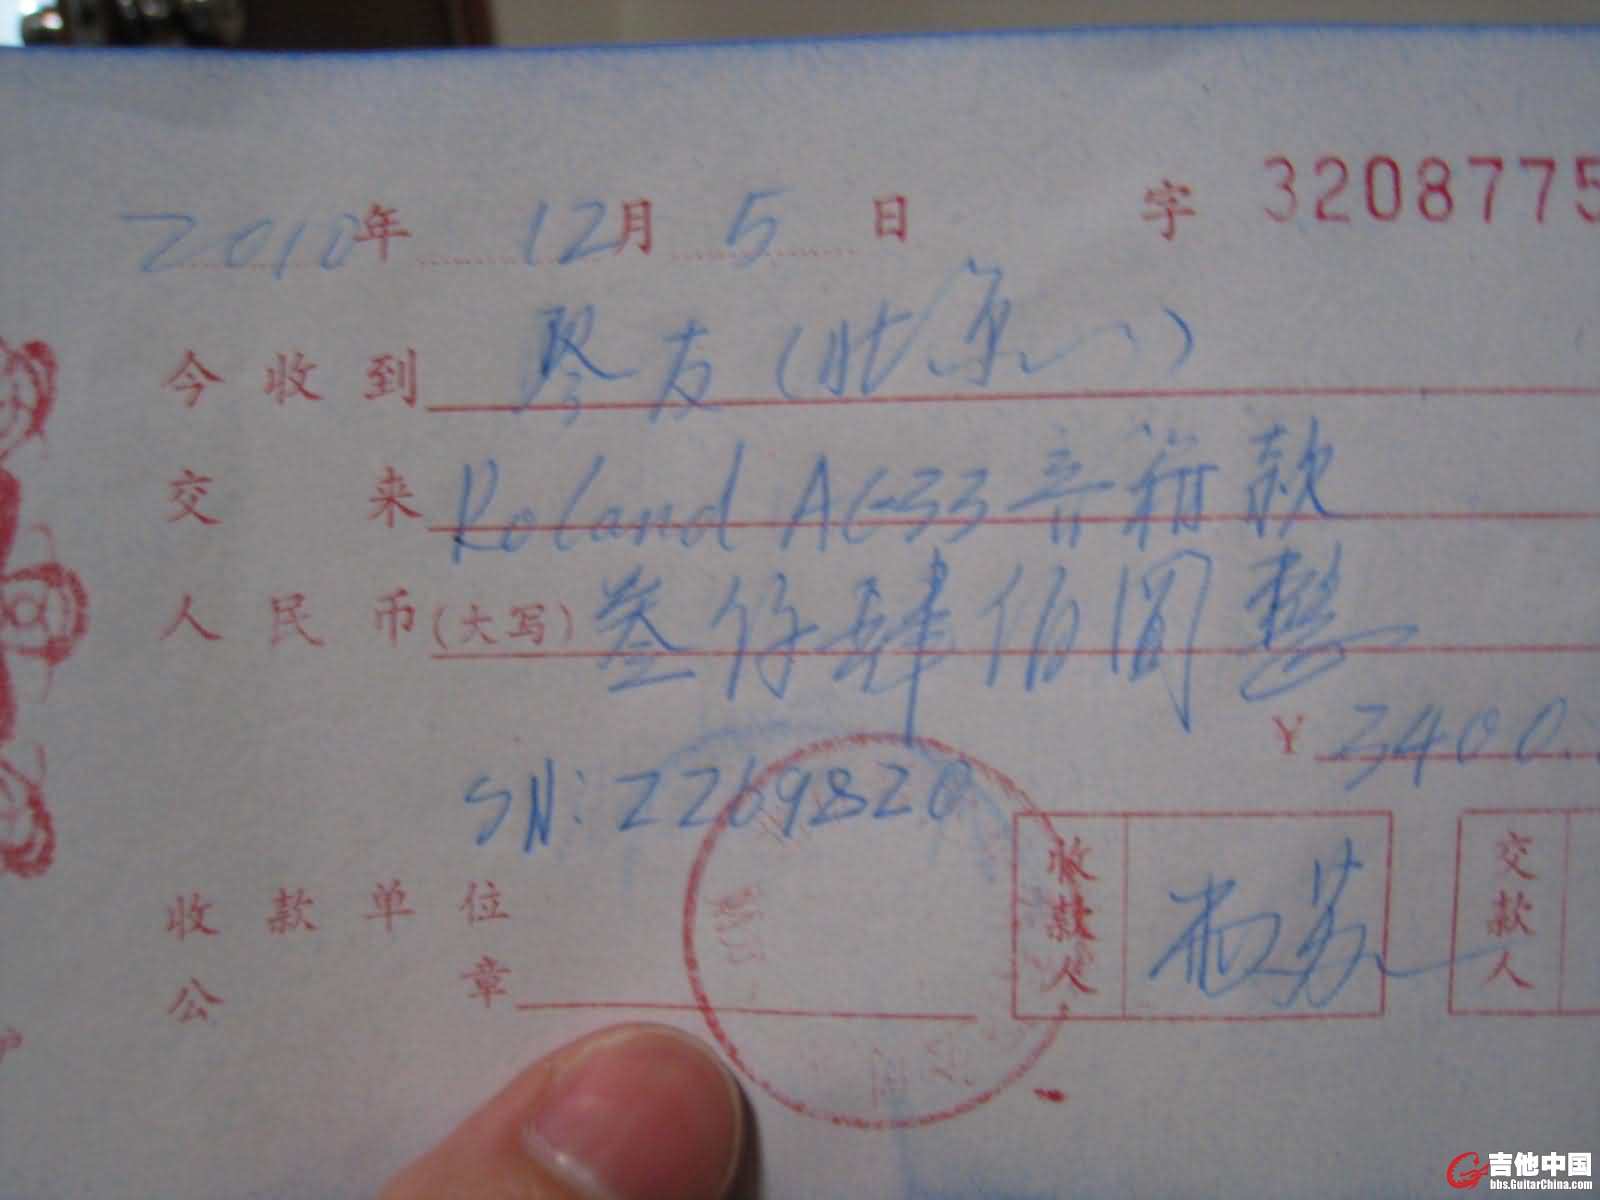 2010年 12月 5日 字 3208775
今收到 琴友(北京)
交来 Roland AC-33 音箱款
人民币(大写) 叁仟肆佰圆整
¥ 3400.
SN: 2269820
收款单位
公章
收款人
交款人
吉他中国
bbs.GuitarChina.com